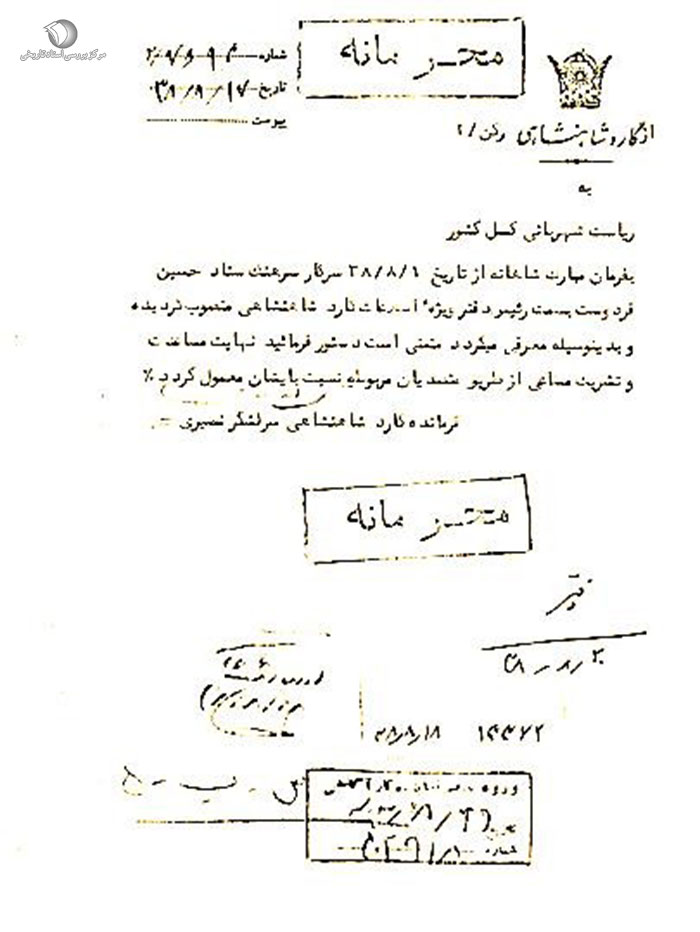 مرکز بررسی اسناد تاریخی
محرمانه
شماره
تاریخ ۳۸/۸/۱۷
پیوست
از گارد شاهنشاهی رکن /۲
به
ریاست شهربانی کل کشور
بفرمان مبارک شاهانه از تاریخ ۳۸/۸/۱ سرکار سرهنگ ستاد حسین
فردوست بسمت رئیس دفتر ویژه اطلاعات گارد شاهنشاهی منصوب گردیده
و بدینوسیله معرفی میگردد متمنی است دستور فرمائید نهایت مساعدت
و تشریک مساعی از طریق متصدیان مربوطه نسبت بایشان معمول گردد ٪
فرمانده گارد شاهنشاهی سرلشگر نصیری
محرمانه
دفتر
۳۸/۸/۱۸
ورود
شماره